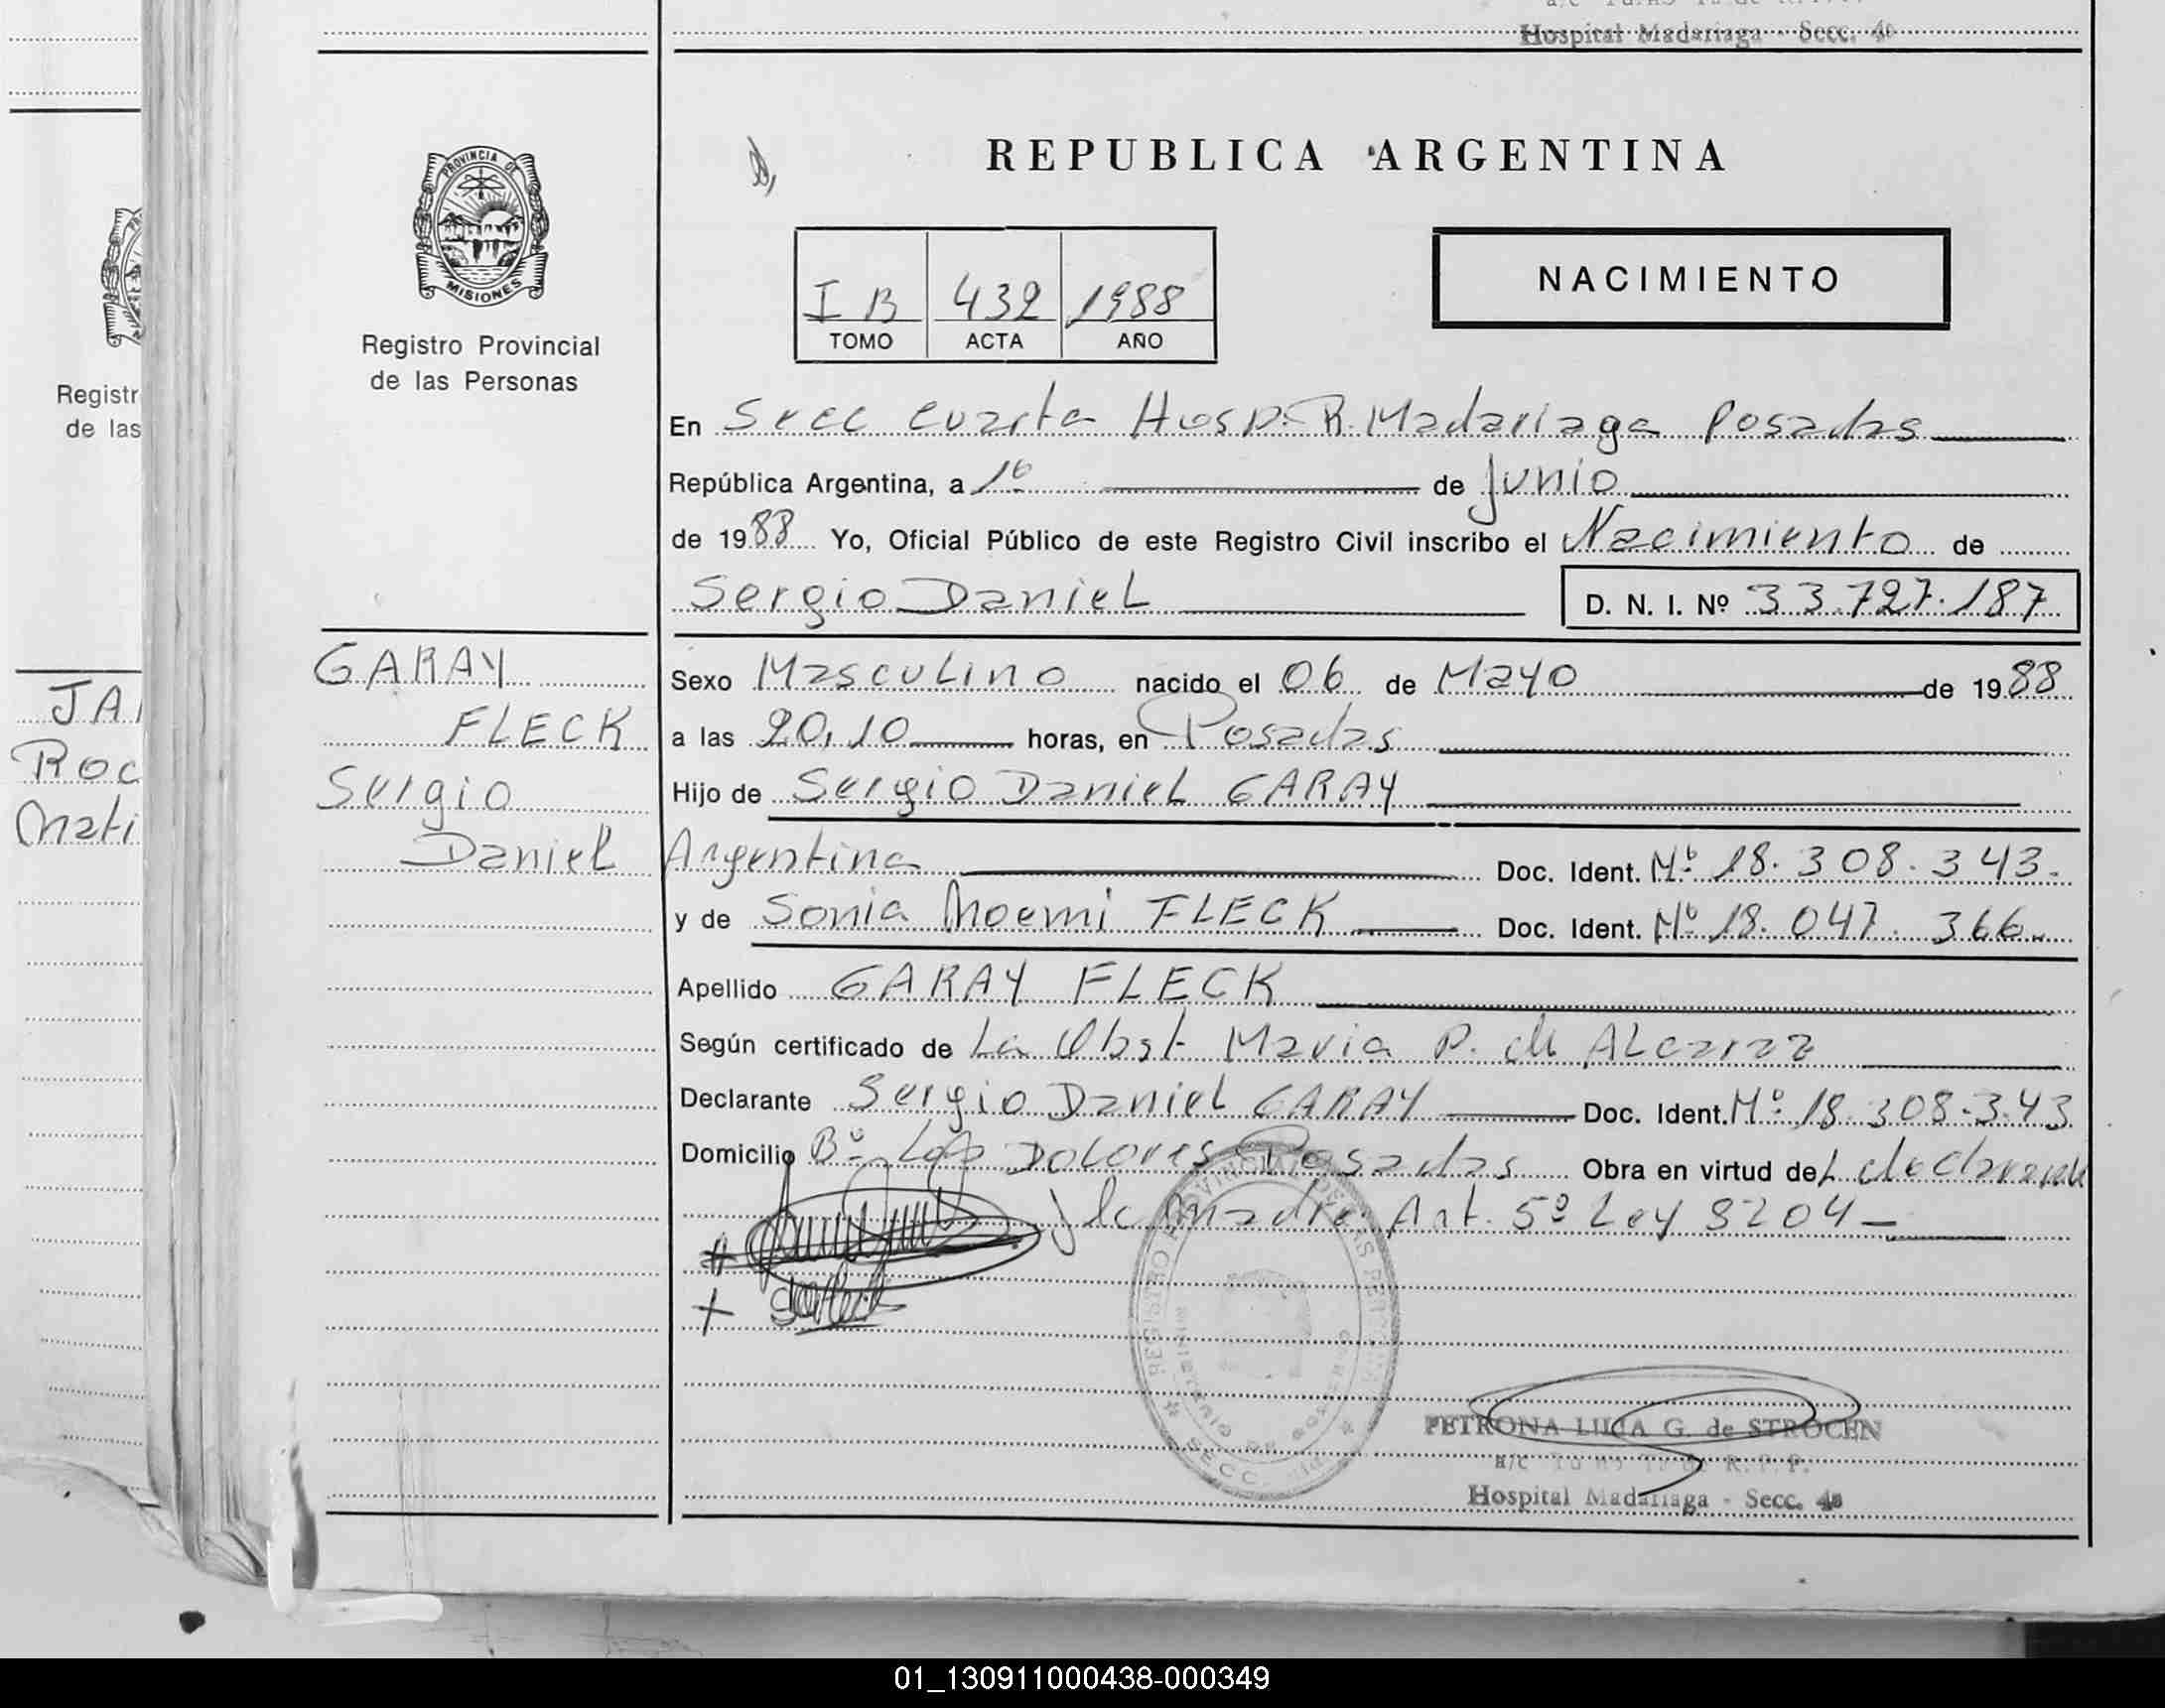 Hospital Madariaga - Secc. 4a
REPUBLICA ARGENTINA
PROVINCIA DE
MISIONES
Registro Provincial
de las Personas
I B 432 1988
TOMO ACTA AÑO
NACIMIENTO
En Secc cuarta Hosp. R. Madariaga Posadas
República Argentina, a 1º de Junio
de 1988 Yo, Oficial Público de este Registro Civil inscribo el Nacimiento de
Sergio Daniel D. N. I. Nº 33.727.187
GARAY
FLECK
Sergio
Daniel
Sexo Masculino nacido el 06 de Mayo de 1988
a las 20,10 horas, en Posadas
Hijo de Sergio Daniel GARAY
Argentina Doc. Ident. Nº 18.308.343.
y de Sonia Noemi FLECK Doc. Ident. Nº 18.047.366.
Apellido GARAY FLECK
Según certificado de La Obst Maria P. de ALcaraz
Declarante Sergio Daniel GARAY Doc. Ident. Nº 18.308.343
Domicilio Bº Los Dolores Posadas Obra en virtud del declarante
y la Madre Art. 5º Ley
PETRONA LILIA G. de STROCEN
R. P. P.
Hospital Madariaga - Secc. 4a
Registr
de las
JA
Roc
Mati
01_130911000438-000349